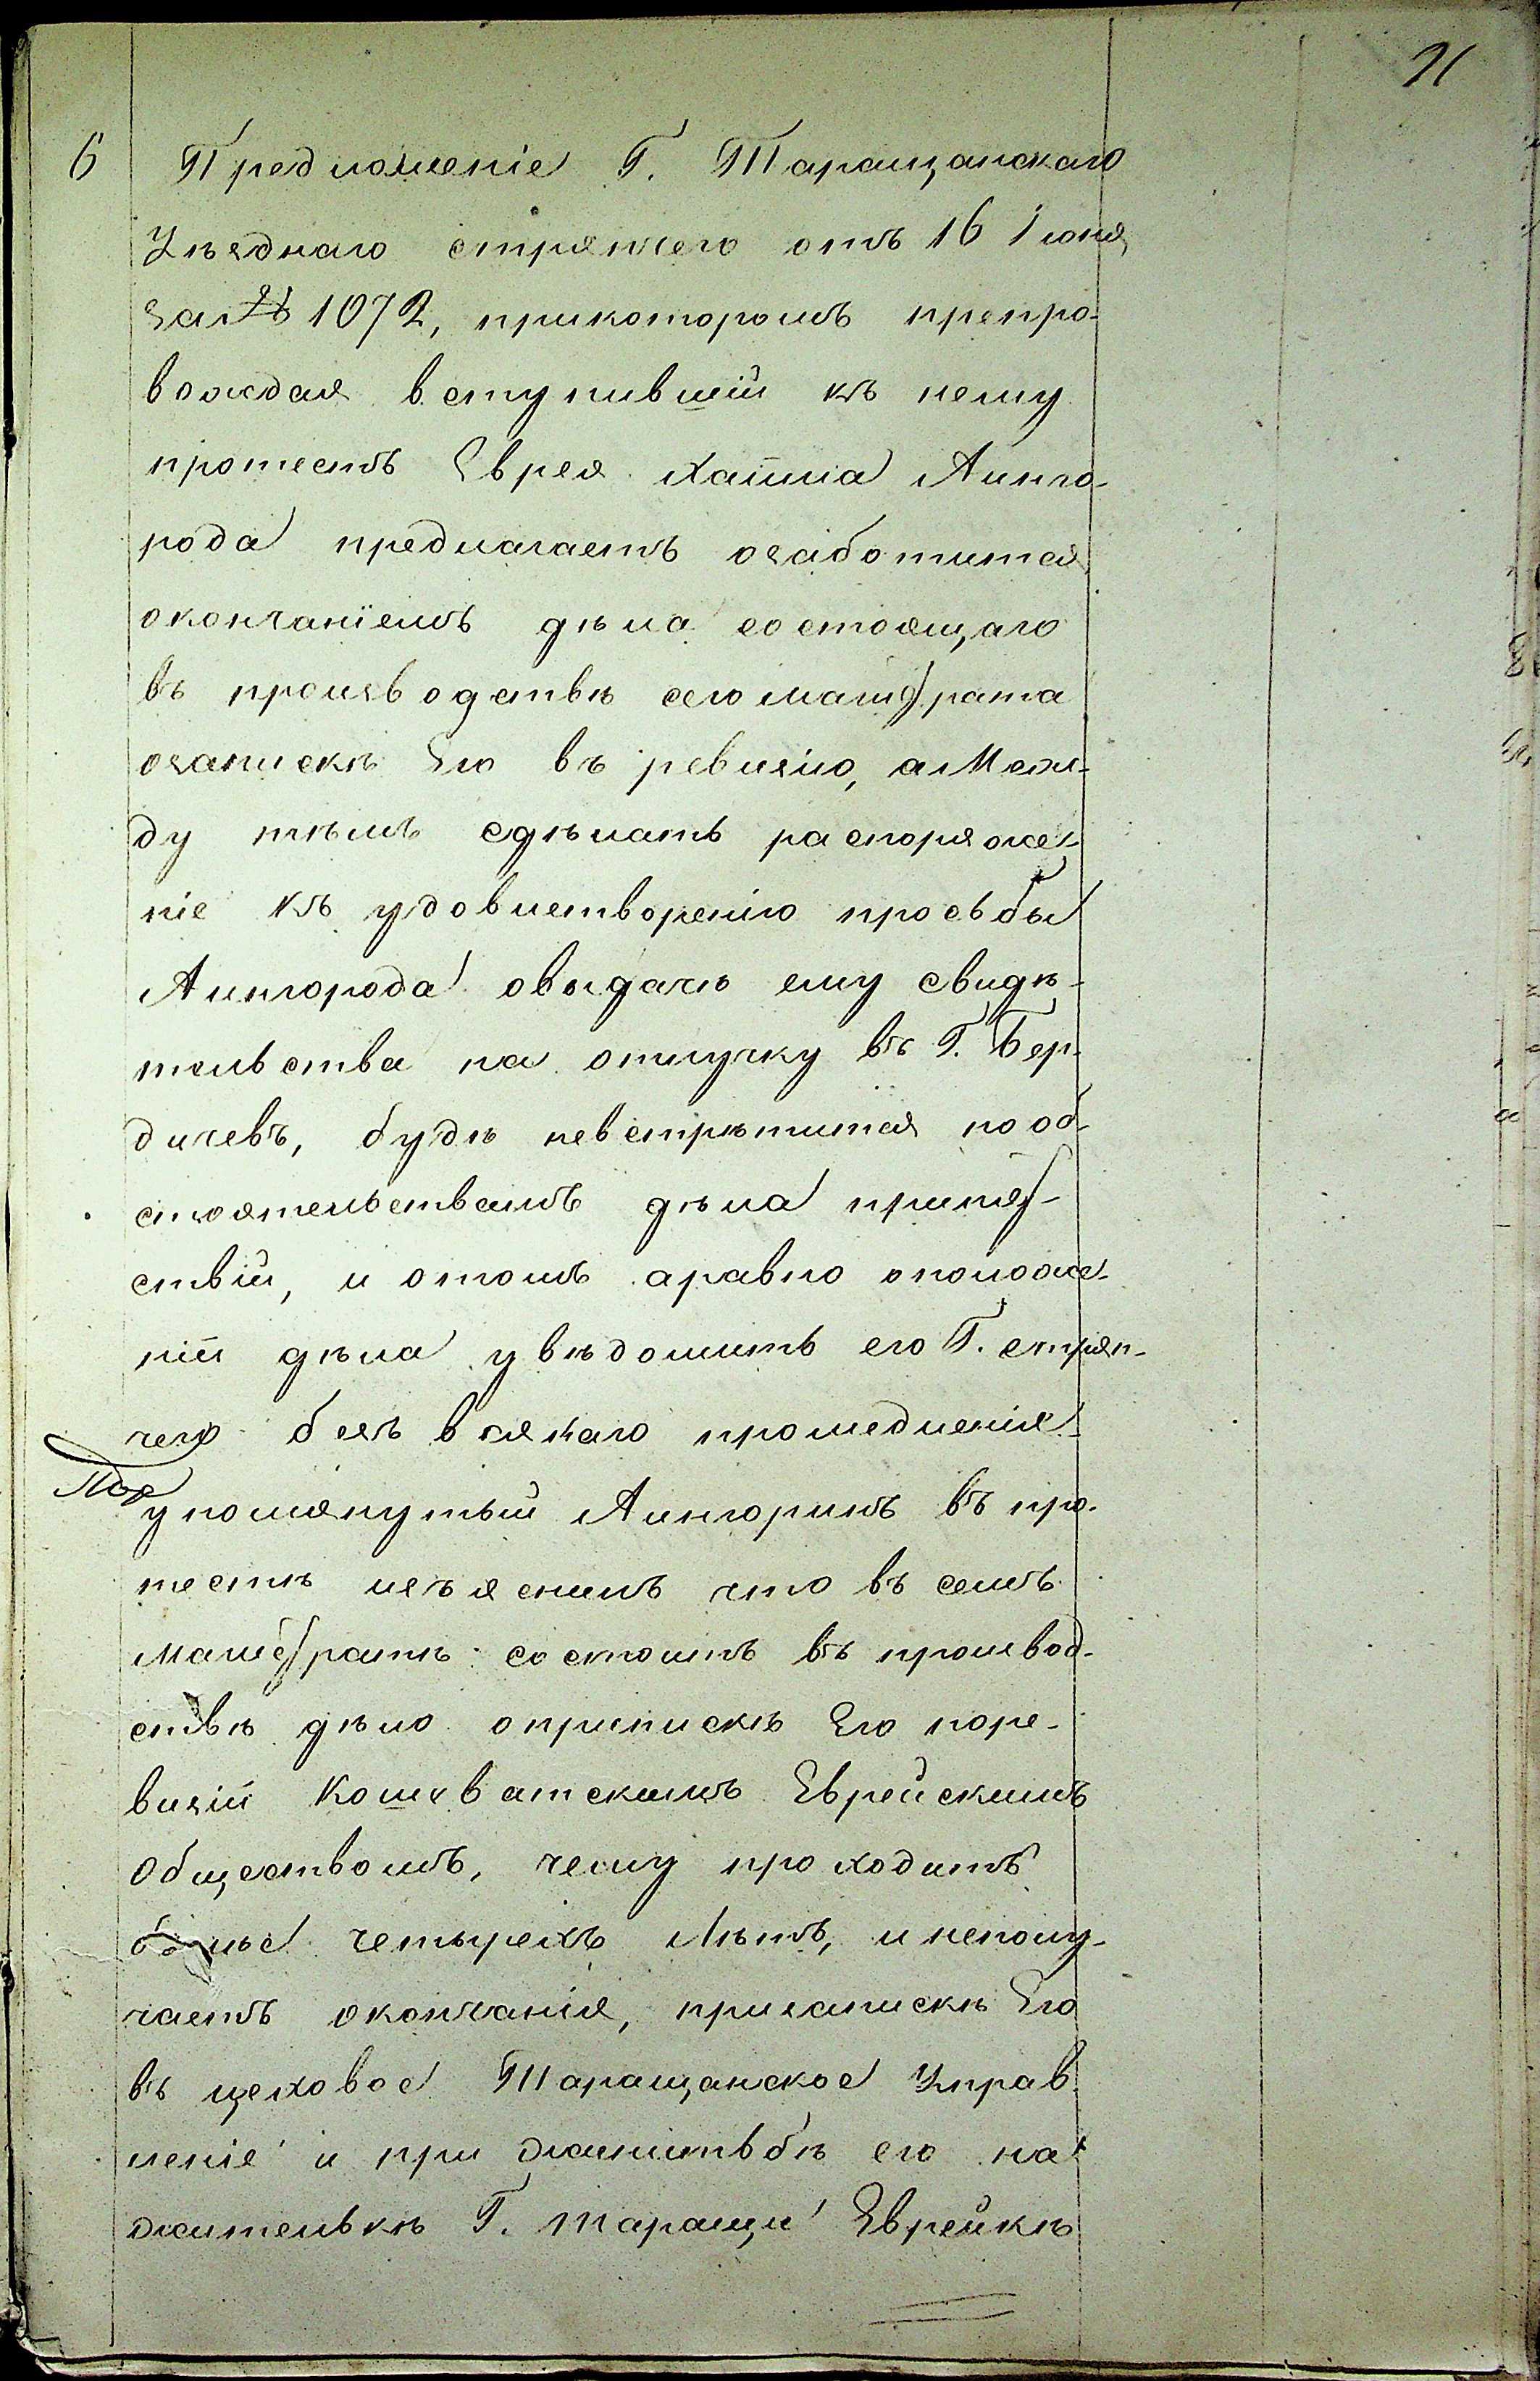 21
6 Предложеніе Г. Таращанскаго
Уѣзднаго стряпчего отъ 16 Іюня
за № 1072, прикоторомъ препро-
вождая вступившій къ нему
протестъ Еврея Хаима Аинго-
рода предлагаетъ озаботится
окончаніемъ дѣла состоящаго
въ производствѣ сего магистрата
озапискѣ Его въ ревизію, а Меж-
ду тѣмъ сдѣлать распоряже-
ніе къ удовлетворенію просьбы
Аингорода овыдачѣ ему свидѣ-
тельства на отлучку въ Г. Бер-
дичевъ, будѣ невстрѣтится пооб-
стоятельствамъ дѣла припят-
ствій, и отомъ аравно оположе-
ній дѣла увѣдомить его Г. стряп-
чего безъ всякаго промедленія
упомянутый Аингоринъ въ про-
тестѣ изъяснилъ что въ семъ
магистратѣ состоитъ въ производ-
ствѣ дѣло оприпискѣ Его поре-
визій Кошеватскимъ Еврейскимъ
Обществомъ, чему проходитъ
болье четырехъ Лѣтъ, и неполу-
чаетъ окончанія, призапискѣ Его
въ цеховое Таращанское Управ-
леніе и при женитьбѣ его на
жителькѣ Г. Таращи Еврейкѣ